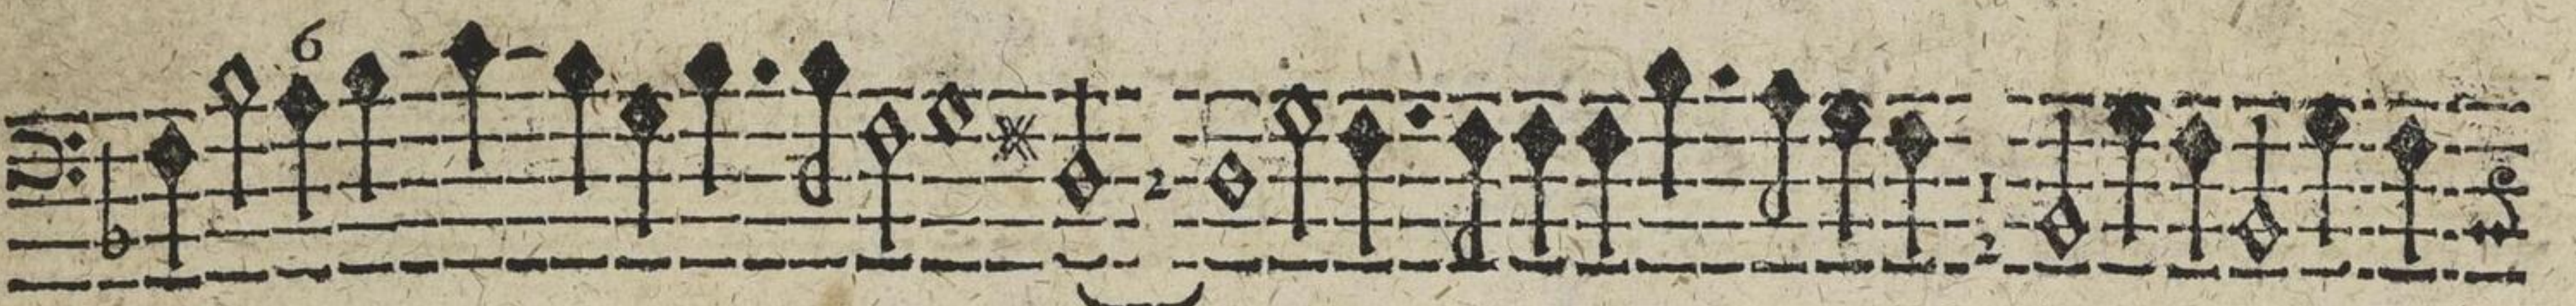 6
2
1
2